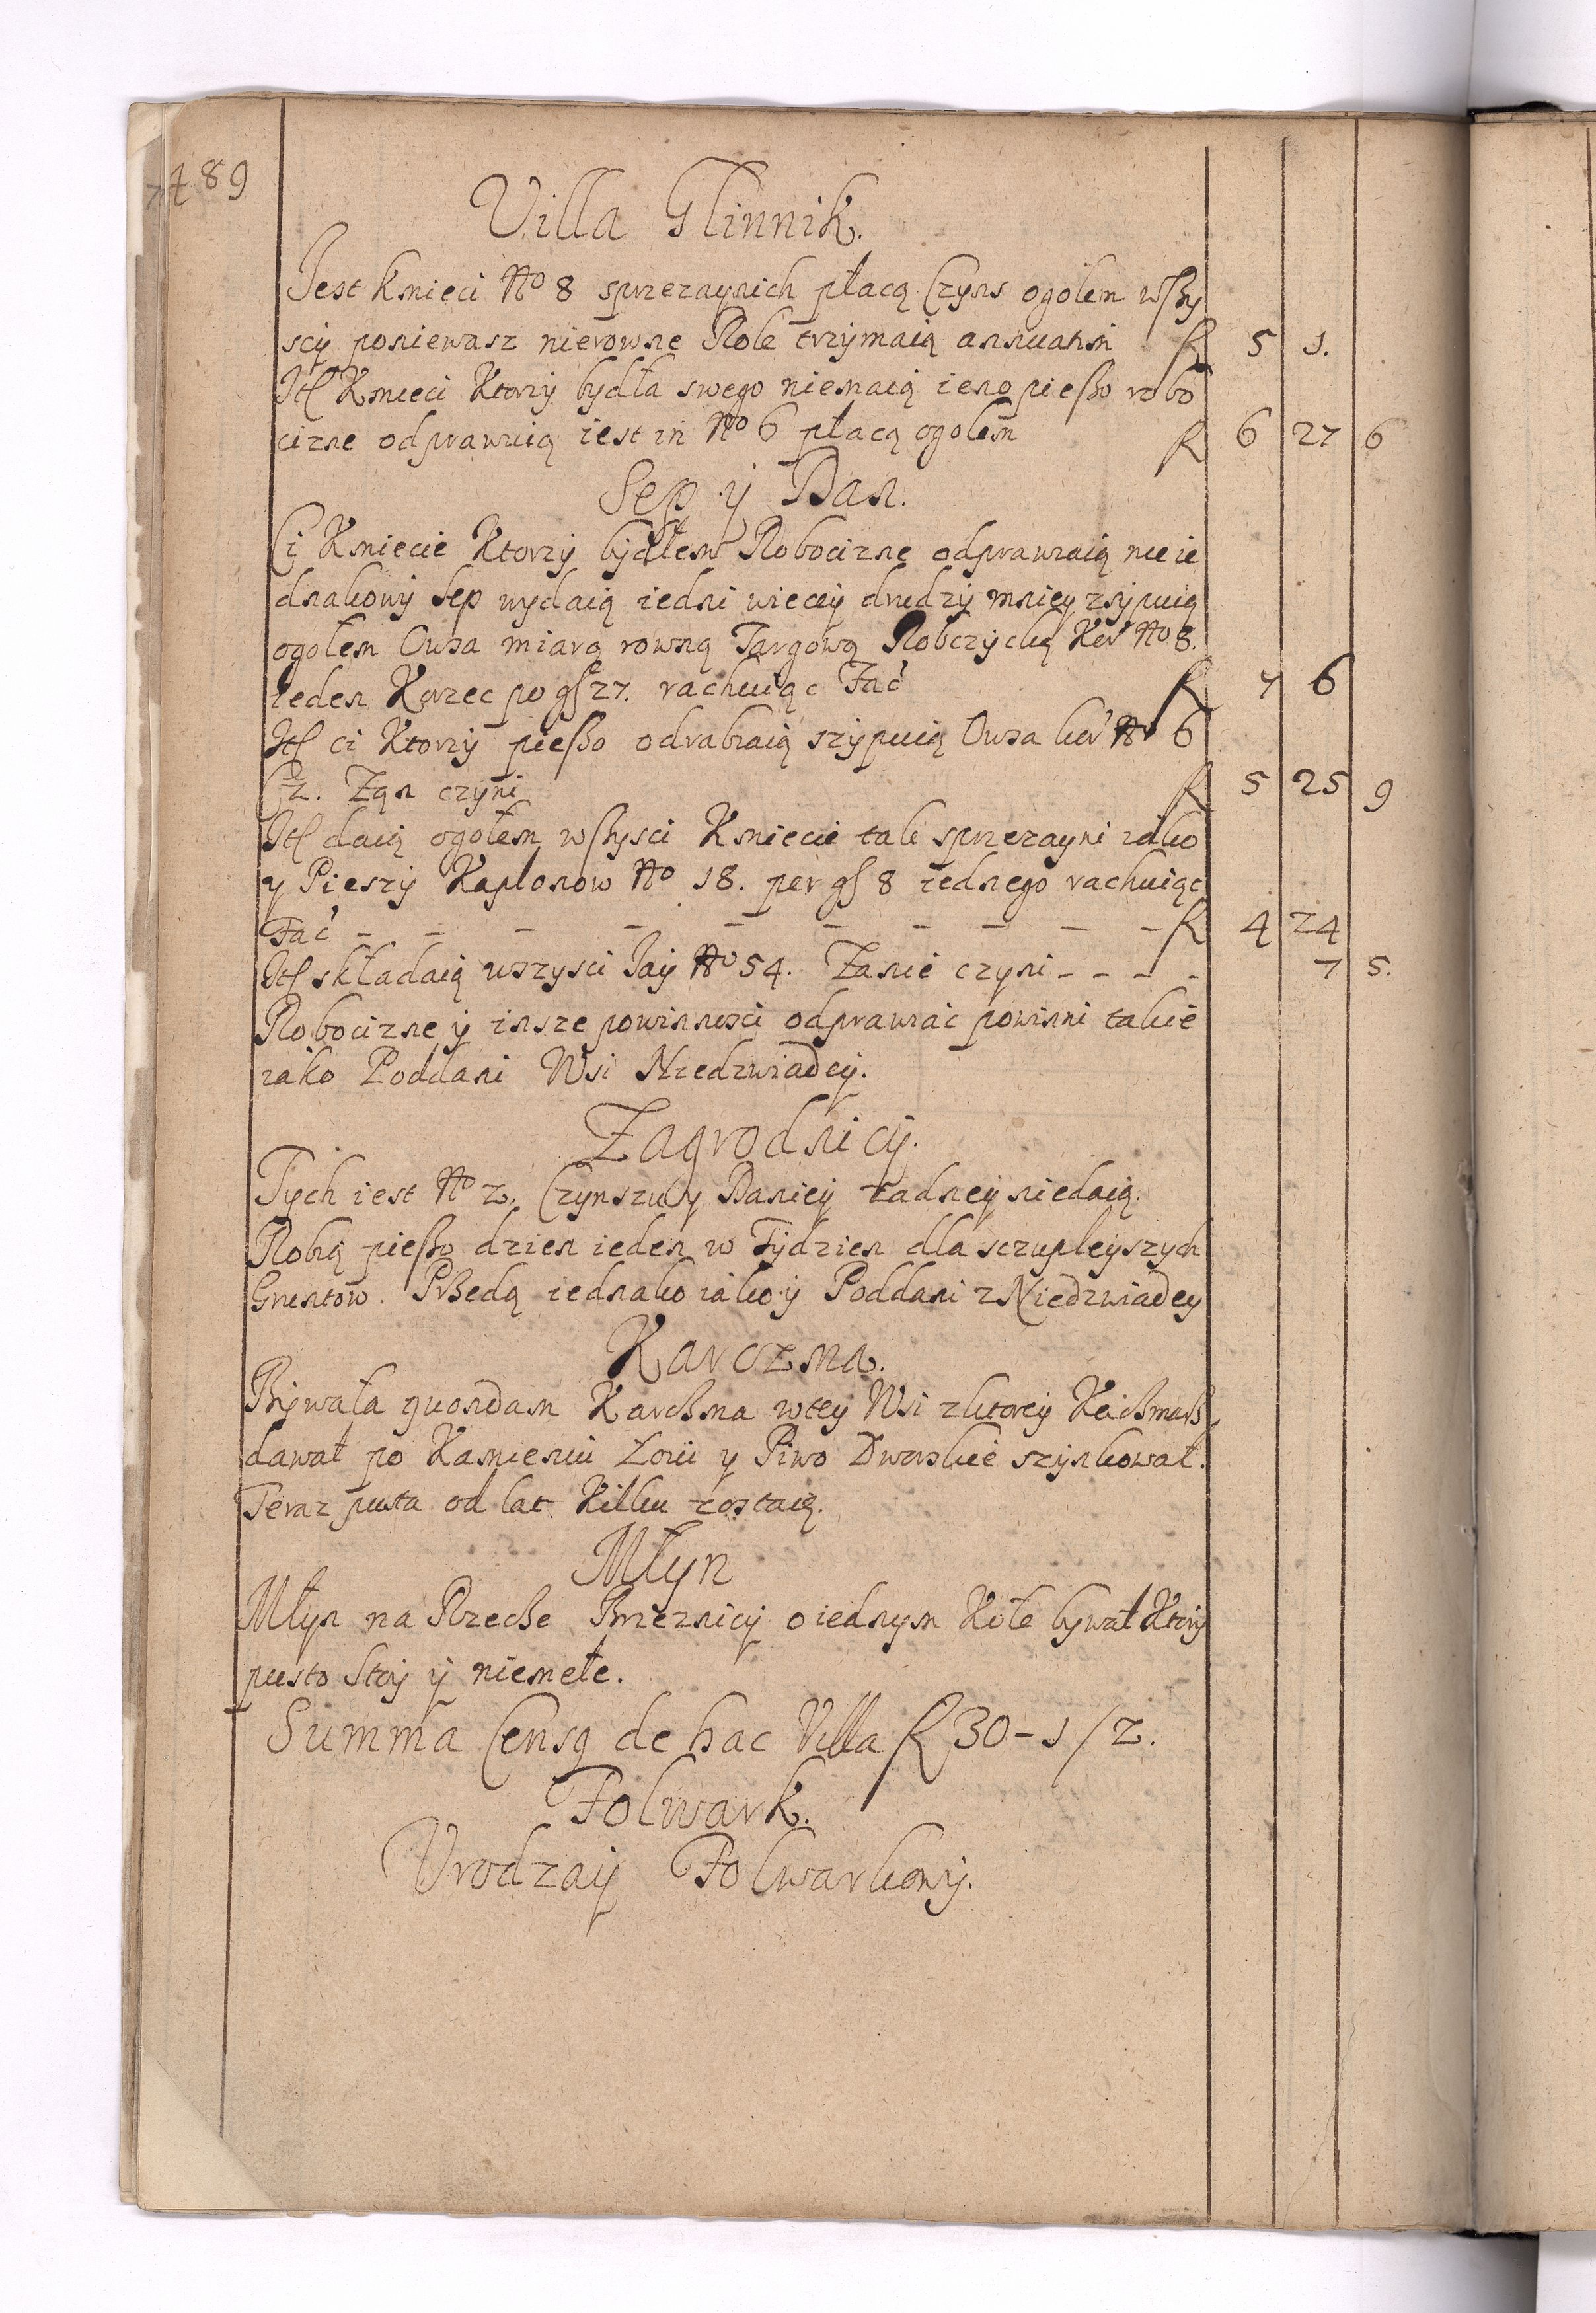 489
Villa Glinnik.
Jest kmieci No 8 sprzezaynich płacą Czyns ogolem wszy
scy poniewasz nierowne Role trzymaią annuatim fl 5 1.
Itl Kmieci Ktorzy bydła swego niemaią ieno pieszo robo
cizne odprawuią iest in No 6 płacą ogolem fl 6 27 6
Sep y Dan.
Ci Kmiecie Ktorzy bydłem Robocizne odprawuią nie ie
dnakowy Sep wydaią iedni wiecey drudzy mniey zsypuią
ogołem Owsa miarą rowną Targową Robczycką Kor No 8.
ieden Korzec po gl 27. rachuiąc Fac fl 7 6
Itl ci Ktorzy pieszo odrabiaią szypuią Owsa kor No 6
Cz. Zań czyni fl 5 25 9
Itl daią ogołem wszysci Kmiecie tak sprzezayni iako
y Pieszy Kapłonow No 18. per gl 8 iednego rachuiąc
Fac – – – – – – – – – – fl 4 24
Itl składaią wszysci Jay No 54. Zanie czyni – – – – 7 5.
Robocizne y insze powinnosci odprawiac powinni takie
iako Poddani Wsi Niedzwiadey.
Zagrodnicy.
Tych iest No 2. Czynszu y Daniey zadney niedaią.
Robią pieszo dzien ieden w Tydzien dla sczupleyszych
Gruntow. Przedą iednako iako y Poddani z Niedzwiadey
Karczma.
Bywała quondam Karczma wtey Wsi zktorey Karczmarz
dawał po Kamieniu Łoiu y Piwo Dworskie szynkował.
Teraz pusta od lat Kilku zostaią.
Młyn
Młyn na Rzecze Brzeznicy o iednym Kole bywał Ktory
pusto Stoy y niemele.
Summa Censq de hac Villa fl 30 – 1 / 2.
Folwark.
Vrodzay Folwarkowy.